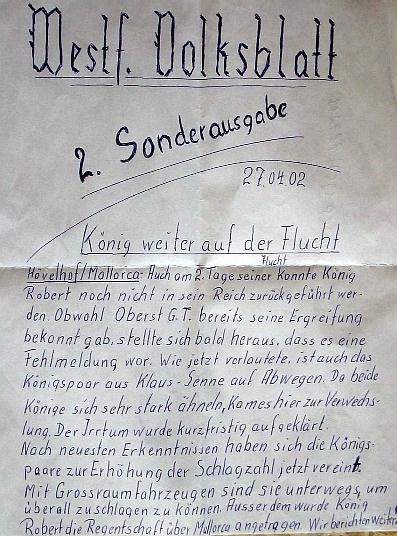 Westf. Volksblatt
2. Sonderausgabe
27.04.02
König weiter auf der Flucht
Flucht
Hövelhof/Mallorca: Auch am 2. Tage seiner konnte König
Robert noch nicht in sein Reich zurückgeführt wer-
den. Obwohl Oberst G.T. bereits seine Ergreifung
bekannt gab, stellte sich bald heraus, dass es eine
Fehlmeldung war. Wie jetzt verlautete, ist auch das
Königspaar aus Klaus-Senne auf Abwegen. Da beide
Könige sich sehr stark ähneln, kam es hier zur Verwechs-
lung. Der Irrtum wurde kurzfristig aufgeklärt.
Nach neuesten Erkenntnissen haben sich die Königs-
paare zur Erhöhung der Schlagzahl jetzt vereint.
Mit Grossraumfahrzeugen sind sie unterwegs, um
überall zuschlagen zu können. Ausserdem wurde König
Robert die Regentschaft über Mallorca angetragen. Wir berichten weiter